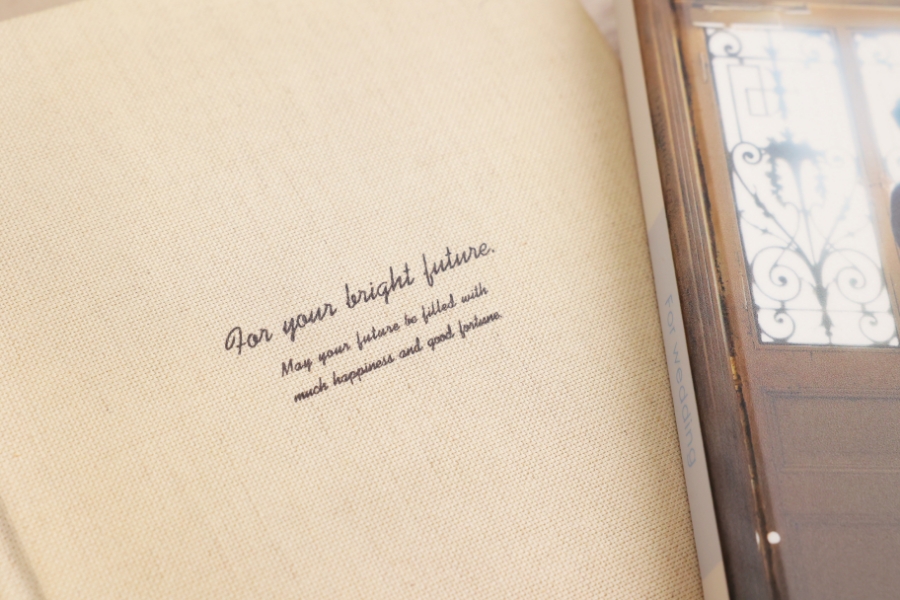 For your bright future.
May your future be filled with
much happiness and good fortune.
For wedding